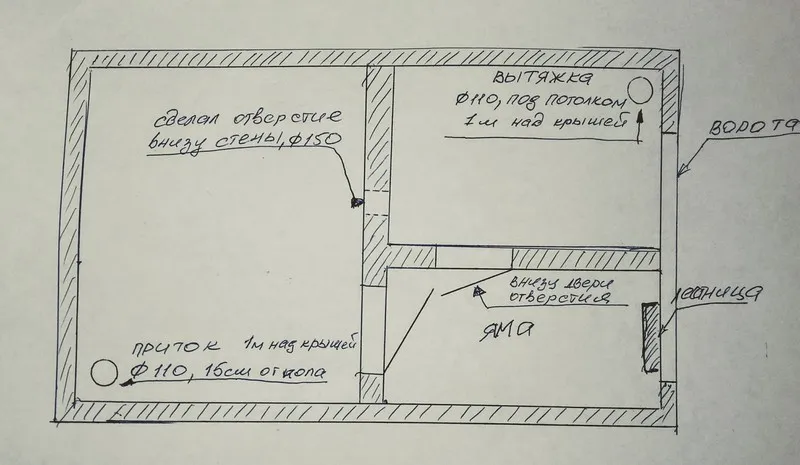 ВЫТЯЖКА
Ф110, ПОД ПОТОЛКОМ
1м НАД КРЫШЕЙ
СДЕЛАЛ ОТВЕРСТИЕ
ВНИЗУ СТЕНЫ, Ф150
ВОРОТА
ВНИЗУ ДВЕРИ
ОТВЕРСТИЯ
ЛЕСТНИЦА
ЯМА
ПРИТОК 1м НАД КРЫШЕЙ
Ф110, 15см ОТ ПОЛА